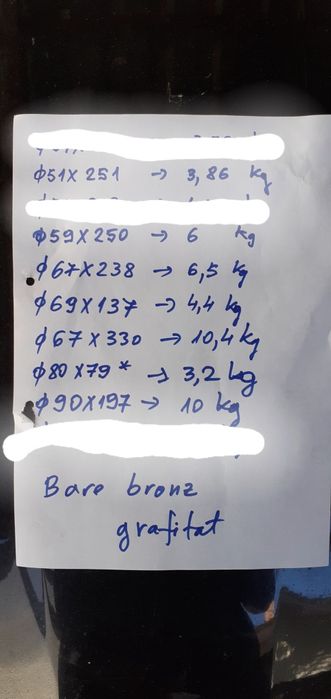 φ51X251 → 3,86 kg
φ59X250 → 6 kg
φ67X238 → 6,5 kg
φ69X137 → 4,4 kg
φ67X330 → 10,4 kg
φ80X79* → 3,2 kg
φ90X197 → 10 kg
Bare bronz
grafitat